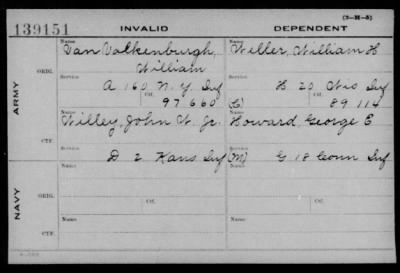 (3-H-5)
139151 INVALID DEPENDENT
ARMY
ORIG.
Name Van Valkenburgh, William
Service A 160 N.Y. Inf
Ctf. 97660
Name Weller, William H
Service H. 20 Wis Inf
Ctf. 89114
CTF.
Name Willey, John W. Jr.
Service D 2 Kans Inf
Name Howard, George E
Service (M) G 18 Conn Inf
NAVY
ORIG.
Name
Ctf.
Name
Ctf.
CTF.
Name
Name